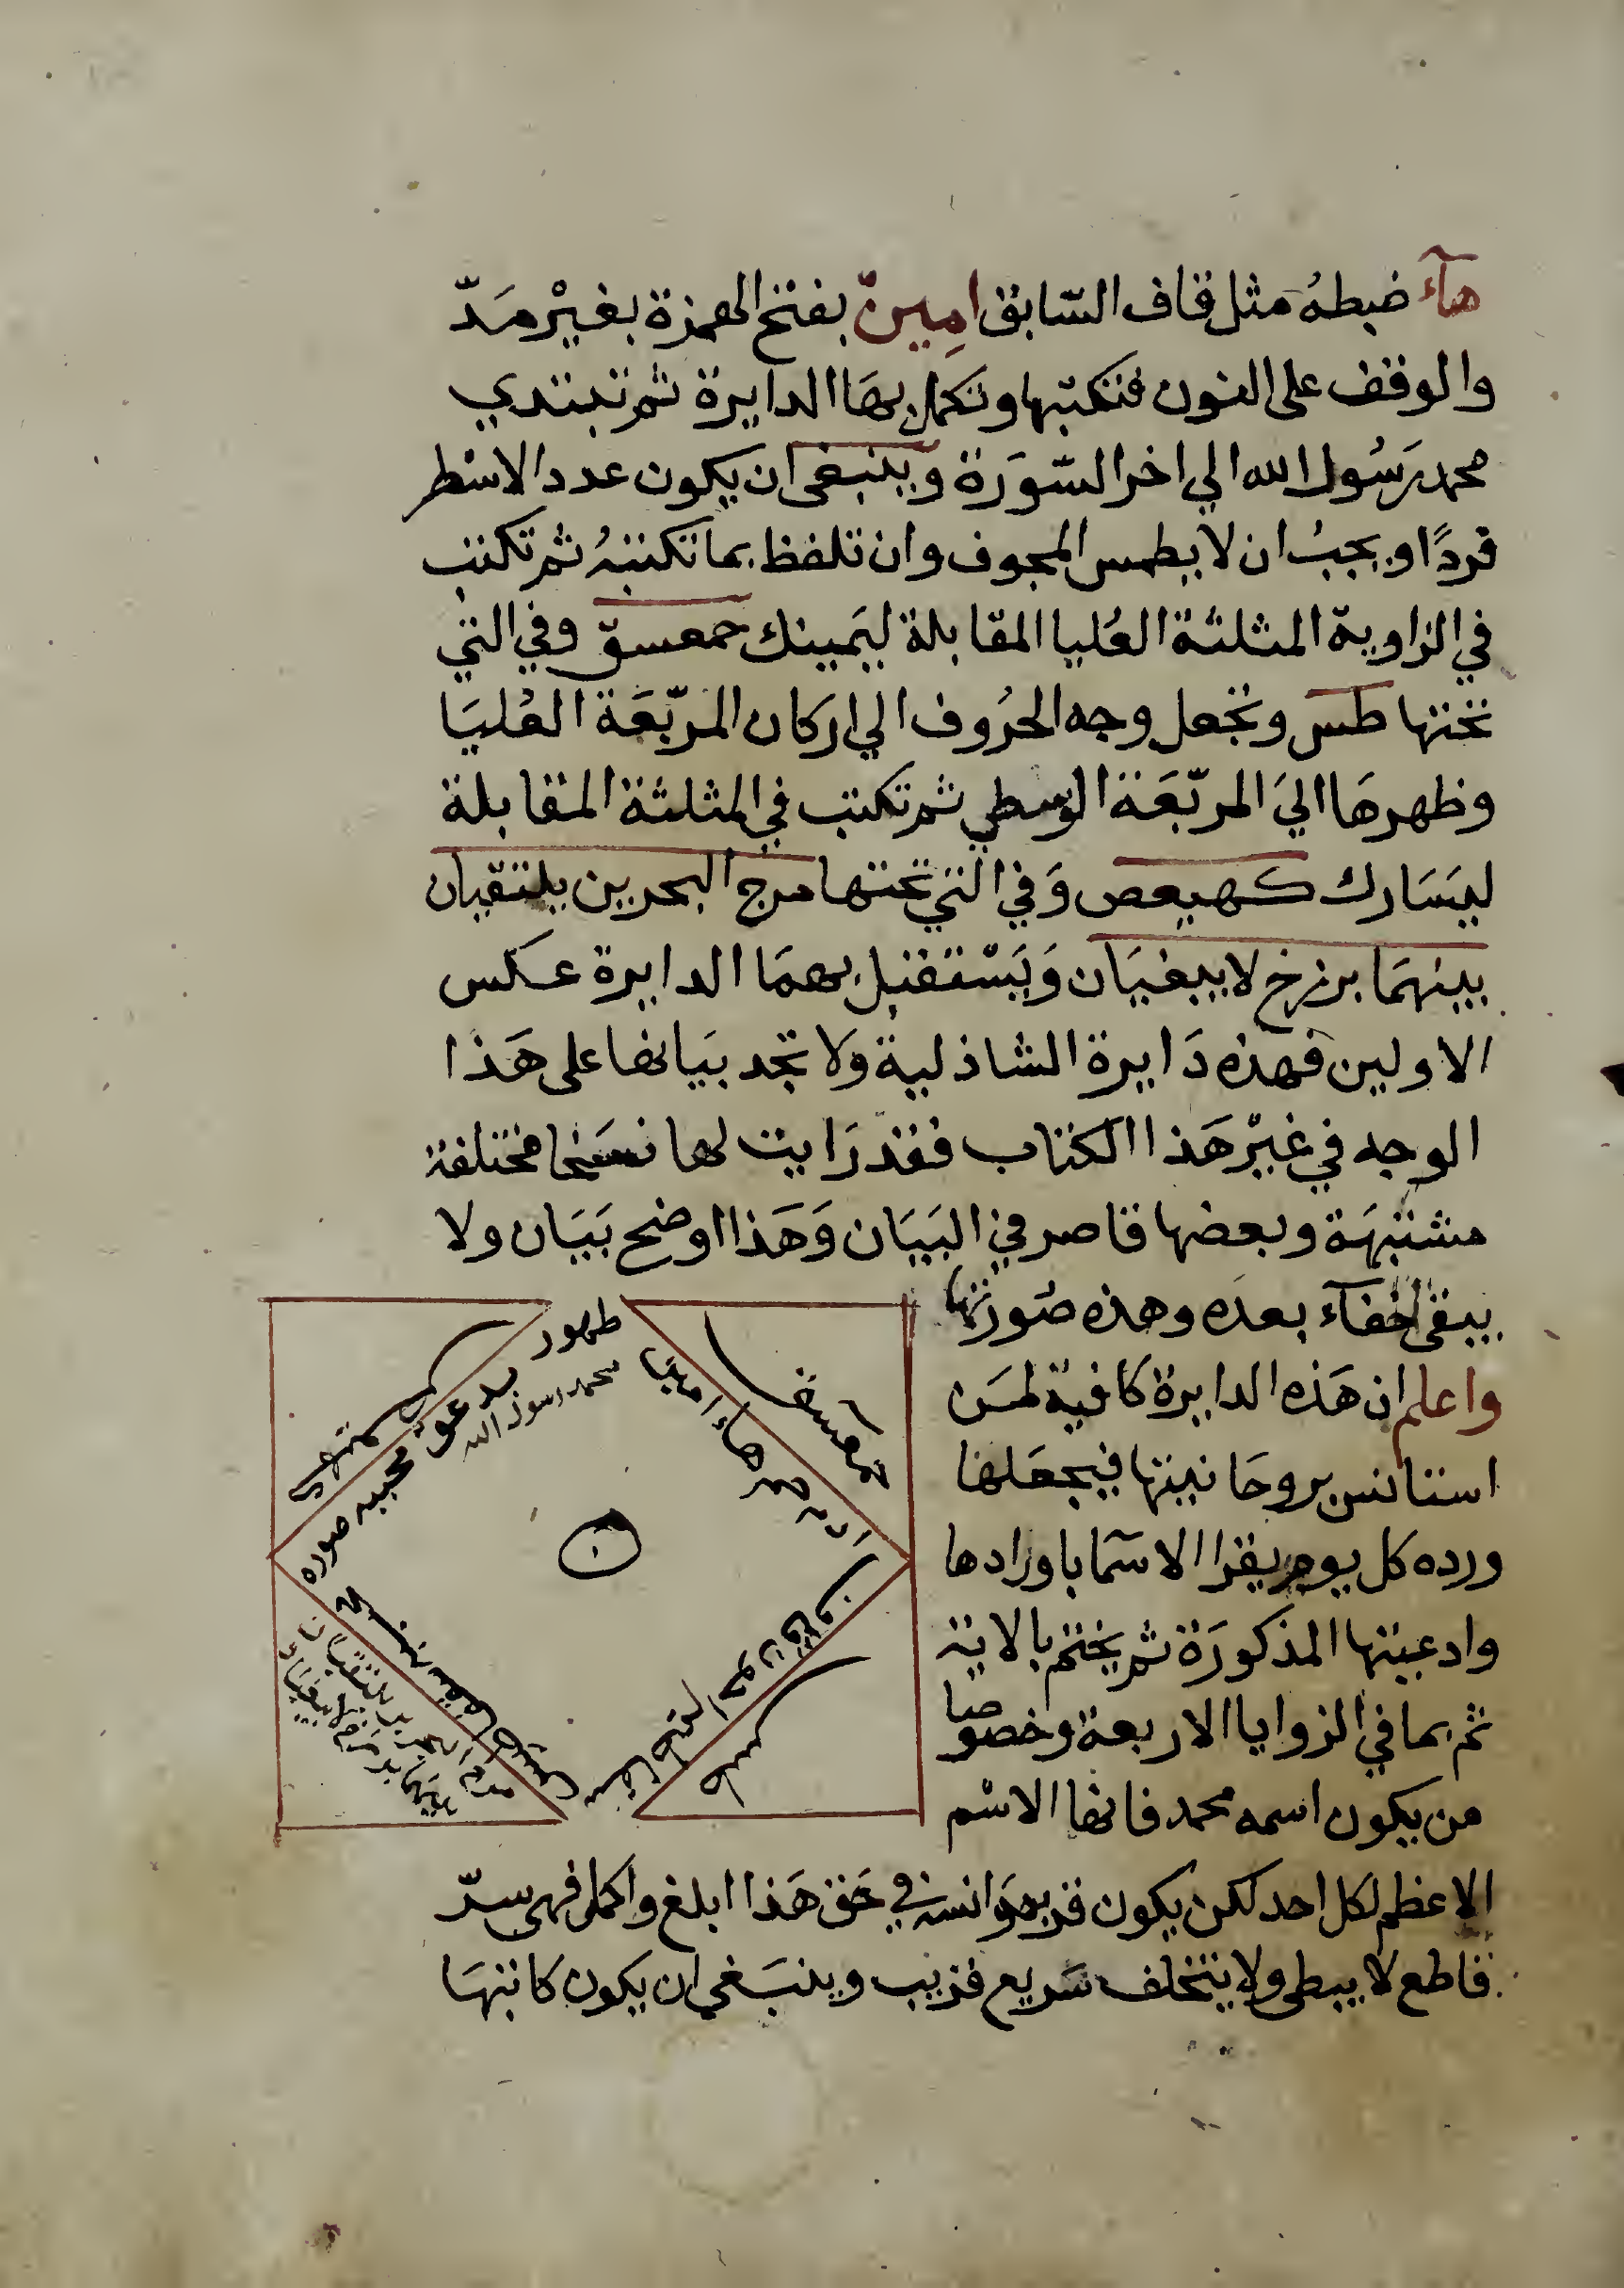 هآء ضبطهُ مثل قاف السّابق امِينّ بفتح الهمزة بغيْر مَدّ
والوقف على النون فتكتبها وتكمل بهَا الدايرة ثم تبتدي
محمد رَسُول الله الي اخر السّوَرة وينبغى ان يكون عدد الاسْطر
فردًا ويجبُ ان لا يطمس المجوف وان تلفظ بما تكتبهُ ثم تكتب
في الزاوية المثلثة العُليا المقابلة ليَمينك حمعسق وفي التي
تحتها طسَ وتجْعل وجه الحرُوف الي اركان المربّعَة العُليَا
وظهرهَا اليَ المربّعَة الوسطي ثم تكتب في المثلثة المقابلة
ليسَارك كهيعص وَفي التي تحتها مرج البحرين يلتقيان
بينهمَا برزخ لا يبغيَان وَيَسْتقبل بهمَا الدايرة عكس
الاولين فهذه دَايرة الشاذلية وَلا تجد بيَانها على هَذا
الوجه في غيْر هَذا الكتاب فقد رَايت لها نسَخا مختلفة
مشتبهَة وبعضها قاصر في البَيَان وَهَذا اوضح بَيَان ولا
يبقى خفآء بعدَه وهذه صُورتها
واعلم ان هَذه الدايرة كافية لمَن
استانس بروحَانيتها فيجعَلها
ورده كل يوم يقرا الاسمَآ باورادها
وادعيتها المذكورَة ثم يختم بالاية
ثم بما في الزوايا الاربعة وخصوصا
من يكون اسمه محمد فانها الاسْم
الاعظم لكل احد لكن يكون قربه وَانسه في حَق هَذا ابلغ واكمل فهي سرّ
قاطع لا يبطى ولا يتخلف سَريع قريب وينبَغي ان يكون كاتبهَا
طهور
بدعق محببه صوره
محمد رسول الله
هاء امين
طس
مرج البحرين يلتقيان
بينهما برزخ لا يبغيان